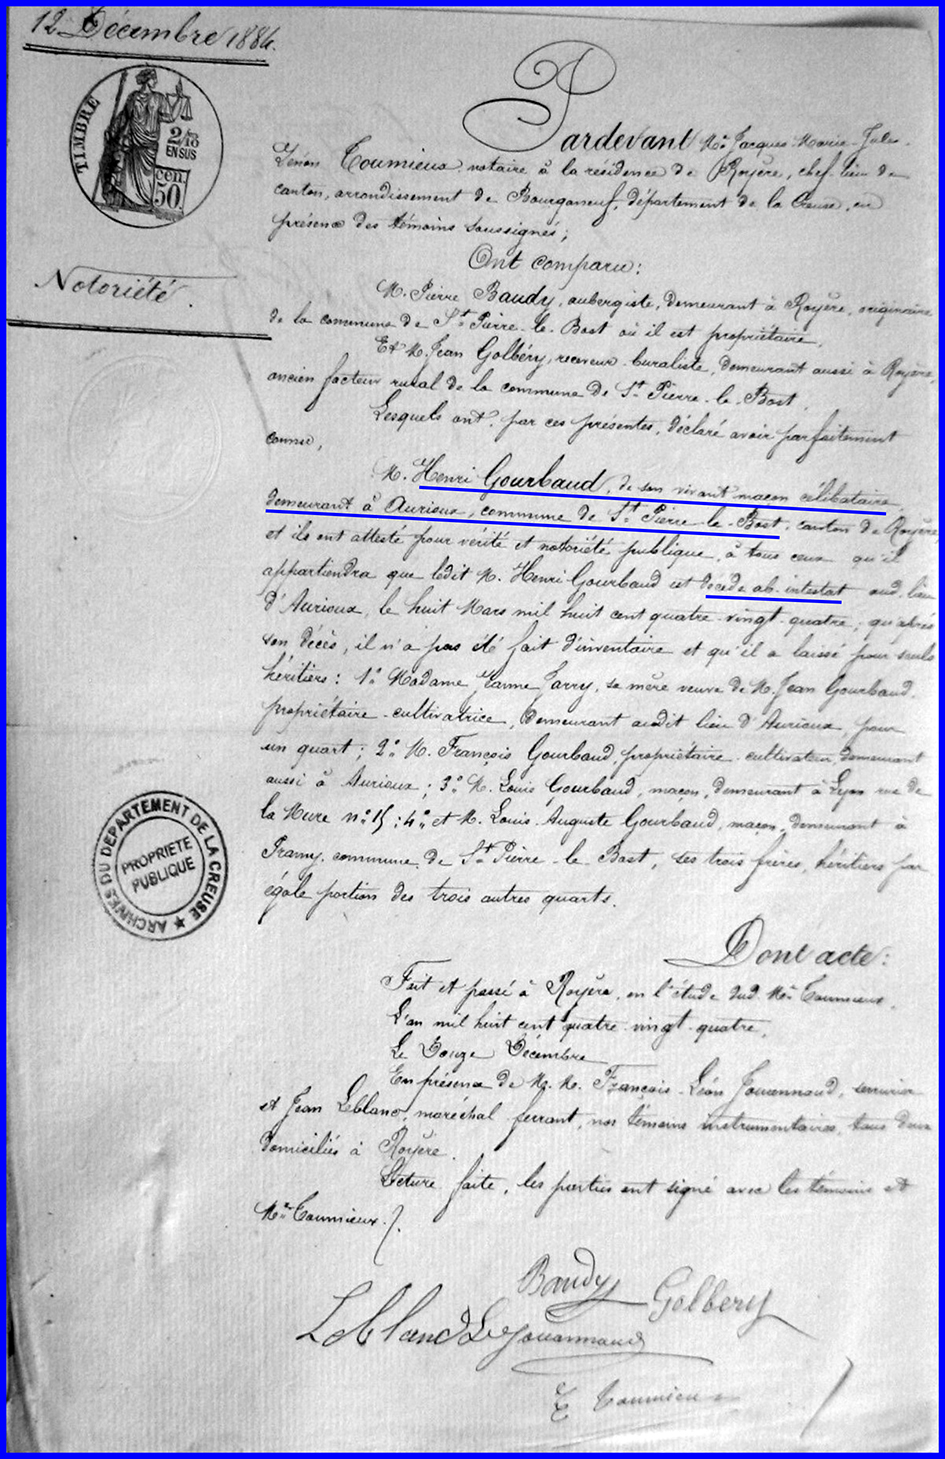 12 Décembre 1884.
TIMBRE
2/10
EN SUS
50 cen
Notoriété.
Pardevant Me Jacques-Marie-Jules-
Zénon Toumieux, notaire à la résidence de Royère, chef-lieu de
canton, arrondissement de Bourganeuf, département de la Creuse, en
présence des témoins soussignés;
Ont comparu:
M. Pierre Baudy, aubergiste, demeurant à Royère, originaire
de la commune de St Pierre-le-Bost où il est propriétaire.
Et M. Jean Golbéry, receveur-buraliste, demeurant aussi à Royère,
ancien facteur rural de la commune de St Pierre-le-Bost.
Lesquels ont, par ces présentes, déclaré avoir parfaitement
connu,
M. Henri Gourbaud, de son vivant maçon célibataire
demeurant à Aurioux, commune de St Pierre-le-Bost, canton de Royère,
et ils ont attesté pour vérité et notoriété publique, à tous ceux qu'il
appartiendra que ledit M. Henri Gourbaud est décédé ab-intestat aud. lieu
d'Aurioux, le huit Mars mil huit cent quatre-vingt-quatre; qu'après
son décès, il n'a pas été fait d'inventaire et qu'il a laissé pour seuls
héritiers: 1° Madame Jeanne Jarry, sa mère veuve de M. Jean Gourbaud,
propriétaire-cultivatrice, demeurant audit lieu d'Aurioux, pour
un quart; 2° M. François Gourbaud, propriétaire-cultivateur, demeurant
aussi à Aurioux; 3° M. Louis Gourbaud, maçon, demeurant à Lyon rue de
la Mure n° 15; 4° et M. Louis-Auguste Gourbaud, maçon, demeurant à
commune de St Pierre-le-Bost, ses trois frères, héritiers par
égale portion des trois autres quarts.
ARCHIVES DU DEPARTEMENT DE LA CREUSE ★
PROPRIETE
PUBLIQUE
Dont acte:
Fait et passé à Royère, en l'étude dud. Me Toumieux.
L'an mil huit cent quatre-vingt-quatre,
Le Douze Décembre
En présence de M. M. François-Léon Jouannaud, serrurier
et Jean Leblanc, maréchal ferrant, nos témoins instrumentaires, tous deux
domiciliés à Royère.
Lecture faite, les parties ont signé avec les témoins et
Me Toumieux./.
Baudy Golbery
Leblanc L Jouannaud
Z Toumieux